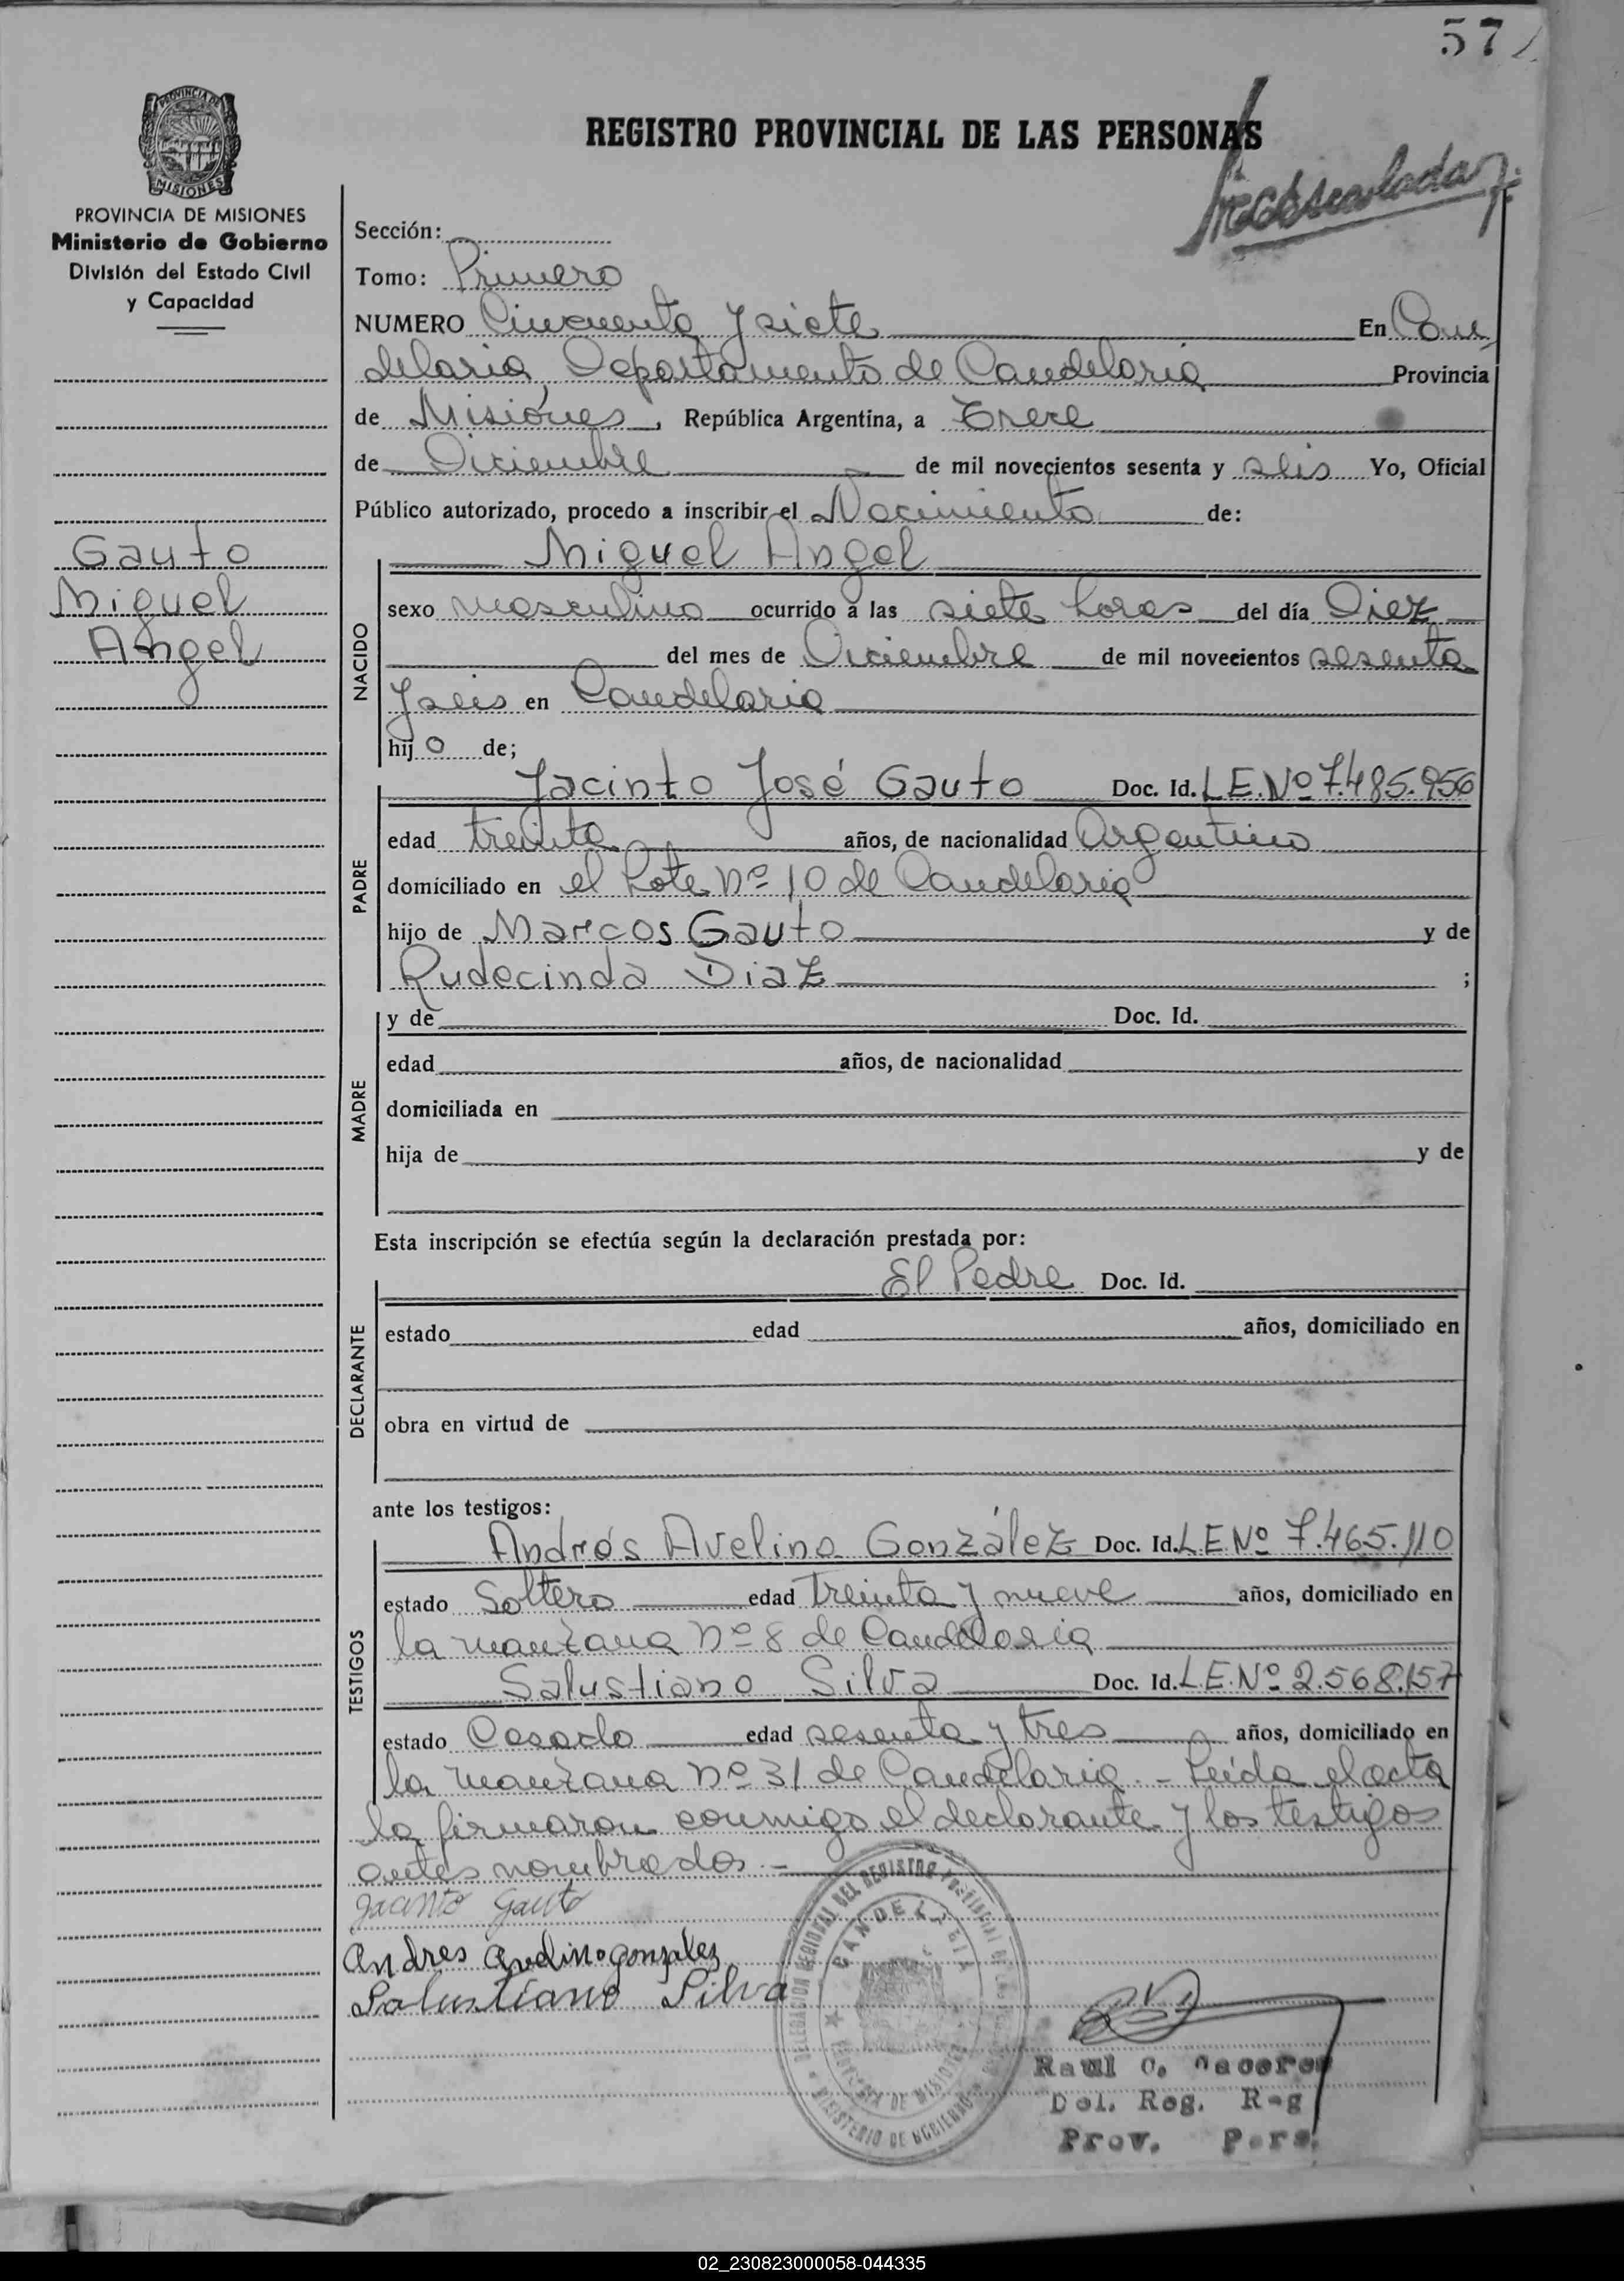 57
PROVINCIA DE
MISIONES
PROVINCIA DE MISIONES
Ministerio de Gobierno
División del Estado Civil
y Capacidad
Gauto
Miguel
Angel
REGISTRO PROVINCIAL DE LAS PERSONAS
Sección:
Tomo: Primero
NUMERO Cincuenta y siete En Can
delaria, Departamento de Candelaria Provincia
de Misiones, República Argentina, a Trece
de Diciembre de mil novecientos sesenta y seis Yo, Oficial
Público autorizado, procedo a inscribir el Nacimiento de:
NACIDO
Miguel Angel
sexo masculino ocurrido a las siete horas del día Diez
del mes de Diciembre de mil novecientos sesenta
y seis en Candelaria
hijo de;
PADRE
Jacinto José Gauto Doc. Id. L.E. Nº 7.485.956
edad treinta años, de nacionalidad Argentino
domiciliado en el Lote Nº 10 de Candelaria
hijo de Marcos Gauto y de
Rudecinda Diaz ;
MADRE
y de Doc. Id.
edad años, de nacionalidad
domiciliada en
hija de y de
Esta inscripción se efectúa según la declaración prestada por:
DECLARANTE
El Padre Doc. Id.
estado edad años, domiciliado en
obra en virtud de
ante los testigos:
TESTIGOS
Andrés Avelino González Doc. Id. L E Nº 7.465.110
estado Soltero edad treinta y nueve años, domiciliado en
la manzana Nº 8 de Candelaria
Salustiano Silva Doc. Id. L.E. Nº 2.568.157
estado Casado edad sesenta y tres años, domiciliado en
la manzana Nº 31 de Candelaria. - Leída el acta
la firmaron conmigo el declarante y los testigos
antes nombrados. -
Jacinto Gauto
Andres Avelino gonzalez
Salustiano Silva
DELEGACION REGIONAL DEL REGISTRO PROVINCIAL DE LAS
CANDELARIA
PROVINCIA DE MISIONES
MINISTERIO DE GOBIERNO
Raul C. Caceres
Del. Reg. Reg
Prov. Pers.
02_230823000058-044335